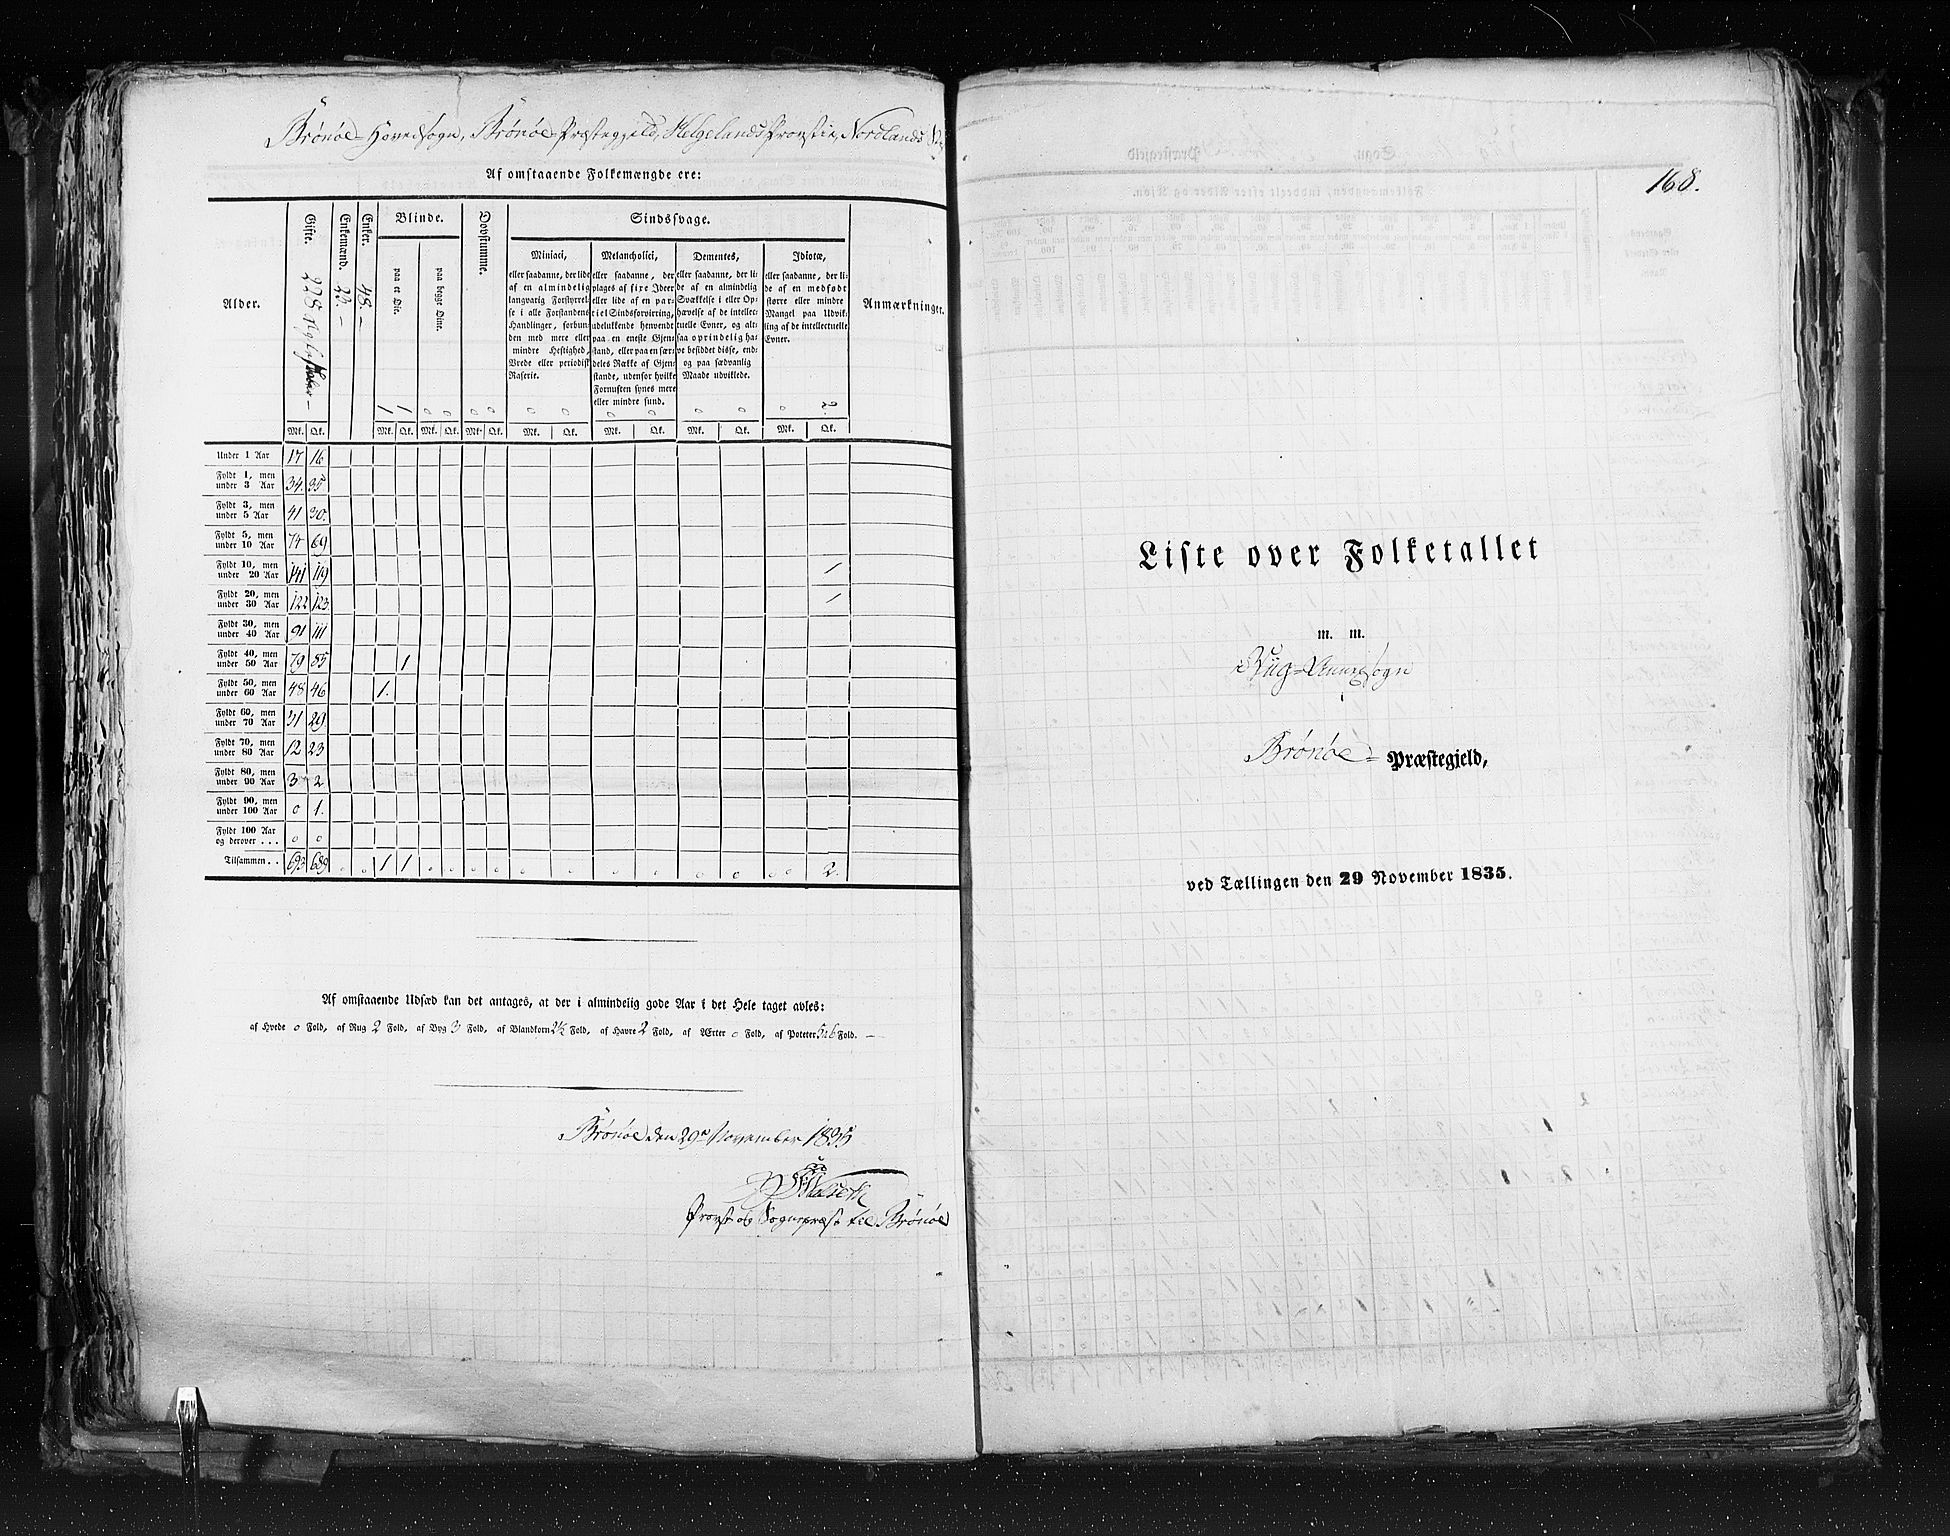 Brönöe-Hovedsogn, Brönöe-Præstegjeld, Helgelands Provstie, Nordlands
Af omstaaende Folkemængde ere:
Alder.
Gifte. 228 Ægteskaber -
Enkemænd. 23. -
Enker. 48. -
Blinde.
paa et Øie.
paa begge Øine.
Døvstumme.
Sindssvage.
Miniaci,
eller saadanne, der lide
af en almindelig
langvarig Forstyrrel-
se i alle Forstandens
Handlinger, forbun-
den med mere eller
mindre Heftighed,
Vrede eller periodisk
Raserie.
Melancholici,
eller saadanne, der
plages af fixe Ideer
eller lide af en par-
tiel Sindsforvirring,
udelukkende henvendt
paa en eneste Gjen-
stand, eller paa en sær-
deles Række af Gjen-
stande, udenfor hvilke
Fornuften synes mere
eller mindre sund.
Dementes,
eller saadanne, der li-
de af en almindelig
Svækkelse i eller Op-
hævelse af de intellec-
tuelle Evner, og alt-
saa oprindelig ha-
ve besiddet disse, end-
og paa sædvanlig
Maade udviklede.
Idiotæ,
eller saadanne, der li-
de af en medfødt
større eller mindre
Mangel paa Udvik-
ling af de intellectuelle
Evner.
Anmærkninger.
1 1 0 0 0 0 0 0 0 0 0 0 0 2.
Mk. Qk. Mk. Qk. Mk. Qk. Mk. Qk. Mk. Qk. Mk. Qk. Mk. Qk. Mk. Qk.
Under 1 Aar 17 16
Fyldt 1, men
under 3 Aar 34. 35
Fyldt 3, men
under 5 Aar 41 30.
Fyldt 5, men
under 10 Aar 74 69
Fyldt 10, men
under 20 Aar 141 119 1
Fyldt 20, men
under 30 Aar 122 123 1
Fyldt 30, men
under 40 Aar 91 111
Fyldt 40, men
under 50 Aar 79 85 1
Fyldt 50, men
under 60 Aar 48 46 1.
Fyldt 60, men
under 70 Aar 31 29
Fyldt 70, men
under 80 Aar 12 23
Fyldt 80, men
under 90 Aar 3 2
Fyldt 90, men
under 100 Aar 0 1.
Fyldt 100 Aar
og derover . . . 0 0
Tilsammen . . 693 689 0 0 1 1 0 0 0 0 0 0 0 0 0 0 0 0 2.
Af omstaaende Udsæd kan det antages, at der i almindelig gode Aar i det Hele taget avles:
af Hvede 0 Fold, af Rug 2 Fold, af Byg 3 Fold, af Blandkorn 2½ Fold, af Havre 2 Fold, af Ærter 0 Fold, af Poteter 5 à 6 Fold. -
Brönöe den 29n November 1835
Provst og Sogneprest til Brönöe
168.
Liste over Folketallet
m. m.
Annexsogn
i
Brönöe- Præstegjeld,
ved Tællingen den 29 November 1835.